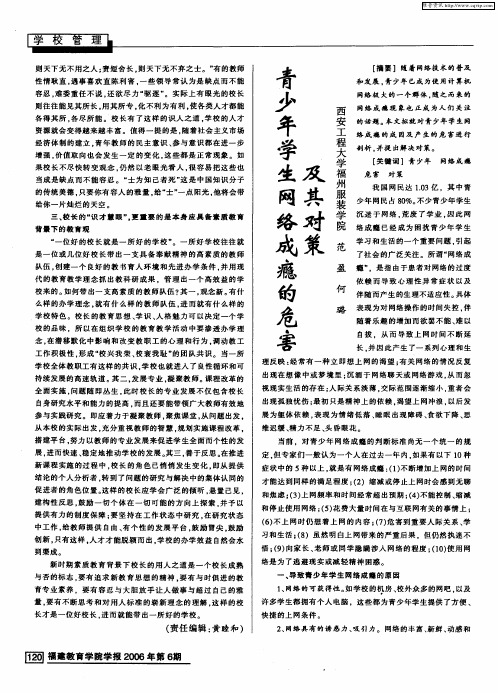 维普资讯 http://www.cqvip.com
学 校 管 理
则天下无不用之人;责短舍长,则天下无不弃之士。”有的教师
性情耿直,遇事喜欢直陈利害,一些领导常认为是缺点而不能
容忍,难委重任不说,还欲尽力“驱逐”。实际上有眼光的校长
则往往能见其所长,用其所专,化不利为有利,使各类人才都能
各得其所,各尽所能。校长有了这样的识人之道,学校的人才
资源就会变得越来越丰富。值得一提的是,随着社会主义市场
经济体制的建立,青年教师的民主意识、参与意识都在进一步
增强,价值取向也会发生一定的变化,这些都是正常现象。如
果校长不尽快转变观念,仍然以老眼光看人,很容易把这些也
当成是缺点而不能容忍。“士为知己者死”这是中国知识分子
的传统美德,只要你有容人的雅量,给“士”一点阳光,他将会带
给你一片灿烂的天空。
三、校长的“识才慧眼”,更重要的是本身应具备素质教育
背景下的教育观
“一位好的校长就是一所好的学校”。一所好学校往往就
是一位或几位好校长带出一支具备奉献精神的高素质的教师
队伍,创建一个良好的教书育人环境和先进办学条件,并用现
代的教育教学理念抓出教科研成果,管理出一个高效益的学
校来的。如何带出一支高素质的教师队伍?其一,观念新。有什
么样的办学理念,就有什么样的教师队伍,进而就有什么样的
学校特色。校长的教育思想、学识、人格魅力可以决定一个学
校的品味。所以在组织学校的教育教学活动中要渗透办学理
念,在潜移默化中影响和改变教职工的心理和行为,调动教工
工作积极性,形成“校兴我荣、校衰我耻”的团队共识。当一所
学校全体教职工有这样的共识,学校也就进入了良性循环和可
持续发展的高速轨道。其二,发展专业,凝聚教师。课程改革的
全面实施,问题随即丛生,此时校长的专业发展不仅包含校长
自身研究水平和能力的提高,而且还要能带领广大教师有效地
参与实践研究。即应着力于凝聚教师,聚焦课堂,从问题出发,
从本校的实际出发,充分重视教师的智慧,规划实施课程改革,
搭建平台,努力以教师的专业发展来促进学生全面而个性的发
展,进而快速、稳定地推动学校的发展。其三,善于反思。在推进
新课程实施的过程中,校长的角色已悄悄发生变化,即从提供
结论的个人分析者,转到了问题的研究与解决中的集体认同的
促进者的角色位置。这样的校长应学会广泛的倾听,悬置己见,
建构性反思,鼓励一切个体在一切可能的方向上探索,并予以
提供有力的制度保障;要坚持在工作状态中研究,在研究状态
中工作,给教师提供自由、有个性的发展平台,鼓励冒尖,鼓励
创新,只有这样,人才才能脱颖而出,学校的办学效益自然会水
到渠成。
新时期素质教育背景下校长的用人之道是一个校长成熟
与否的标志,要有追求新教育思想的精神,要有与时俱进的教
育专业素养。要有容忍与大胆放手让人做事与超过自己的雅
量,要有不断思考和对用人标准的崭新理念的理解,这样的校
长才是一位好校长,进而就能带出一所好的学校。
(责任编辑:黄睦和)
青少年学生网络成瘾的危害
及其对策
西安工程大学福州服装学院 范 盈 何 璐
[摘要] 随着网络技术的普及
和发展,青少年已成为使用计算机
网络极大的一个群体,随之而来的
网络成瘾现象也正成为人们关注
的话题。本文拟就对青少年学生网
络成瘾的成因及产生的危害进行
剖析,并提出解决对策。
[关键词] 青少年 网络成瘾
危害 对策
我国网民达1.03亿,其中青
少年网民占80%。不少青少年学生
沉迷于网络,荒废了学业,因此网
络成瘾已经成为困扰青少年学生
学习和生活的一个重要问题,引起
了社会的广泛关注。所谓“网络成
瘾”,是指由于患者对网络的过度
依赖而导致心理性异常症状以及
伴随而产生的生理不适应性。具体
表现为对网络操作的时间失控,伴
随着乐趣的增加而欲罢不能、难以
自拔,从而导致上网时间不断延
长,并因此产生了一系列心理和生
理反映:经常有一种立即想上网的渴望;有关网络的情况反复
出现在想像中或梦境里;沉溺于网络聊天或网络游戏,从而忽
视现实生活的存在;人际关系淡薄,交际范围逐渐缩小,重者会
出现孤独忧伤;最初只是精神上的依赖,渴望上网冲浪,以后发
展为躯体依赖,表现为情绪低落、睡眠出现障碍、食欲下降、思
维迟缓、精力不足、头昏眼花。
当前,对青少年网络成瘾的判断标准尚无一个统一的规
定,但专家们一般认为一个人在过去一年内,如果有以下10种
症状中的5种以上,就是有网络成瘾:(1)不断增加上网的时间
才能达到同样的满足程度;(2)缩减或停止上网时会感到无聊
和焦虑;(3)上网频率和时间经常超出预期;(4)不能控制、缩减
和停止使用网络;(5)花费大量时间在与互联网有关的事情上;
(6)不上网时仍想着上网的内容;(7)危害到重要人际关系、学
习和生活;(8)虽然明白上网带来的严重后果,但仍然执迷不
悟;(9)向家长、老师或同学隐瞒涉入网络的程度;(10)使用网
络是为了逃避现实或减轻精神困惑。
一、导致青少年学生网络成瘾的原因
1、网络的可获得性。如学校的机房、校外众多的网吧,以及
许多学生都拥有个人电脑。这些都为青少年学生提供了方便、
快捷的上网条件。
2、网络具有的诱惑力、吸引力。网络的丰富、新鲜、动感和
120 福建教育学院学报 2006年第6期